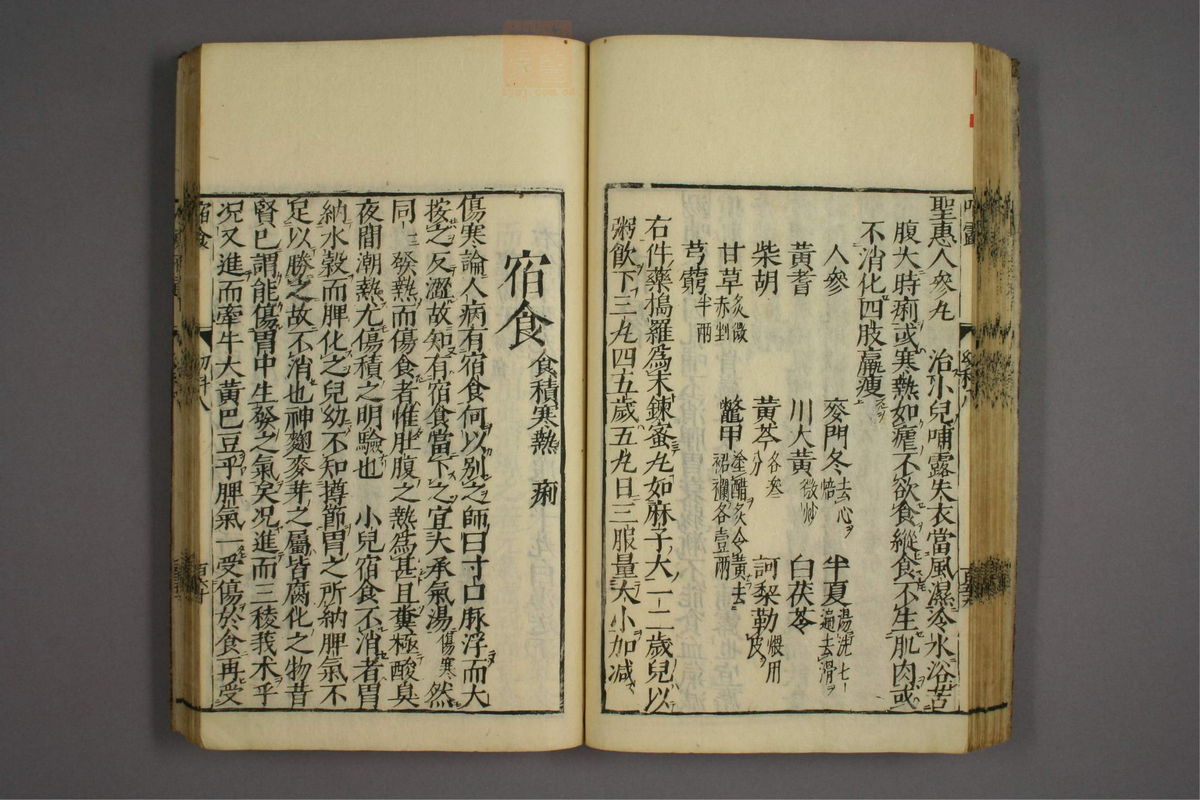 聖惠人參丸　治小兒哺露失衣當風濕冷水浴苦
腹大時痢或寒熱如瘧不欲食縱食不生肌肉或
不消化四肢羸瘦
人參　麥門冬去心焙　半夏湯洗七遍去滑
黃耆　川大黃微炒　白茯苓
柴胡　黃芩各叁分　訶梨勒煨用皮
甘草炙微赤剉　鼈甲塗醋炙令黃去裙襴各壹兩
芎藭半兩
右件藥搗羅爲末鍊蜜丸如麻子大一二歲兒以
粥飲下三丸四五歲五丸日三服量大小加減
宿食食積寒熱　痢
傷寒論人病有宿食何以別之師曰寸口脉浮而大
按之反澀故知有宿食當下之宜大承氣湯傷寒然
同一發熱而傷食者惟肚腹之熱爲甚且糞極酸臭
夜間潮熱尤傷積之明驗也　小兒宿食不消者胃
納水穀而脾化之兒幼不知撙節胃之所納脾氣不
足以勝之故不消也神麴麥芽之屬皆腐化之物昔
賢已謂能傷胃中生發之氣矣況進而三稜莪朮乎
況又進而牽牛大黃巴豆乎脾氣一受傷於食再受
宿食